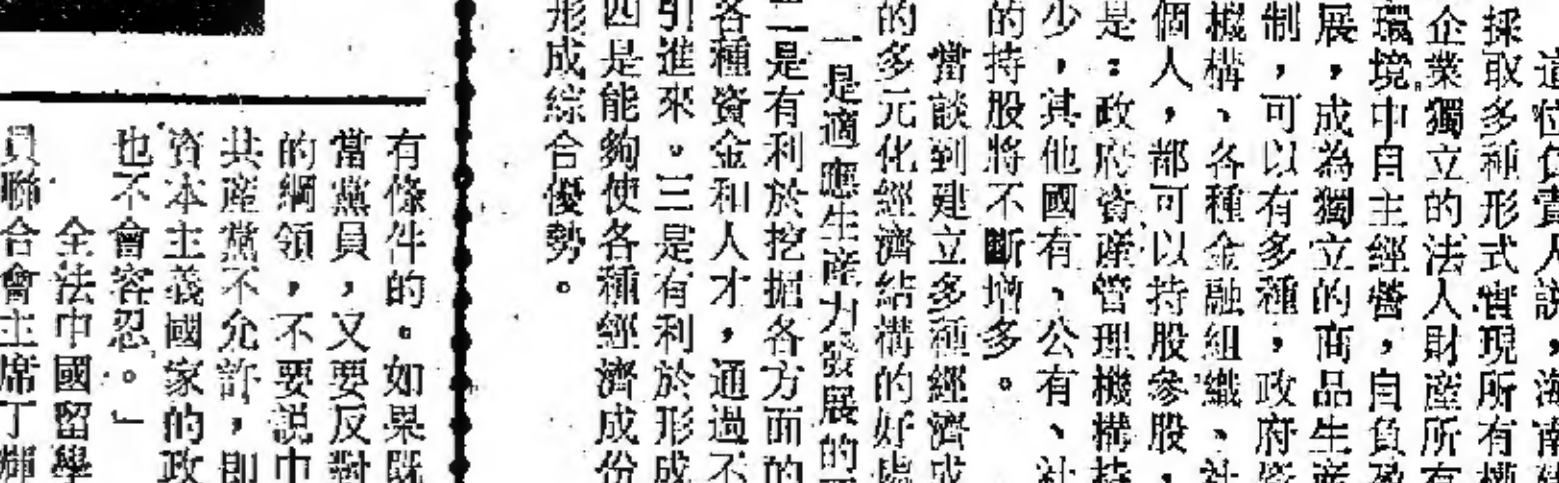 這位負責人說，海南
採取多種形式實現所有權
企業獨立的法人財産所有
環境中自主經營，自負盈
展，成為獨立的商品生産
制，可以有多種，政府
機構、各種金融組織、社
個人，都可以持股參股，
是：政府資産管理機構持
少，其他國有、公有、社
的持股將不斷增多。
當談到建立多種經濟成
的多元化經濟結構的好處
一是適應生産力發展的
二是有利於挖掘各方面的
各種資金和人才，通過不
引進來。三是有利於形成
四是能夠使各種經濟成份
形成綜合優勢。
有條件的。如果既
當黨員，又要反對
的綱領，不要説中
共産黨不允許，即
資本主義國家的政
也不會容忍。」
全法中國留學
員聯合會主席丁